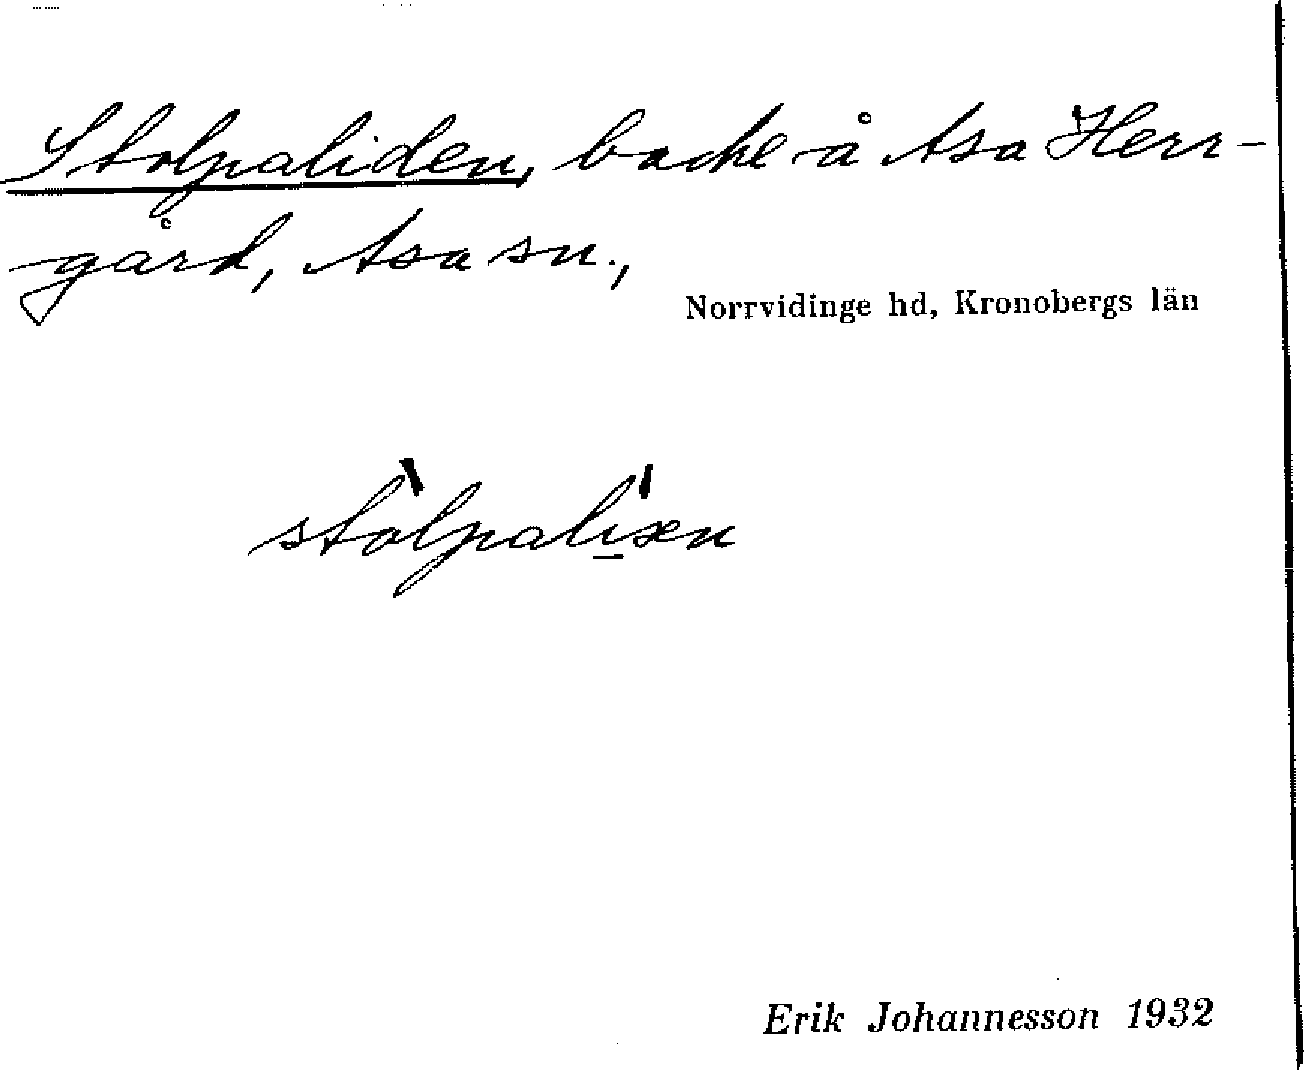 Stolpaliden, backe å Asa Herr-
gård, Asa sn.,
Norrvidinge hd, Kronobergs län
stòlpalí̲sen
Erik Johannesson 1932